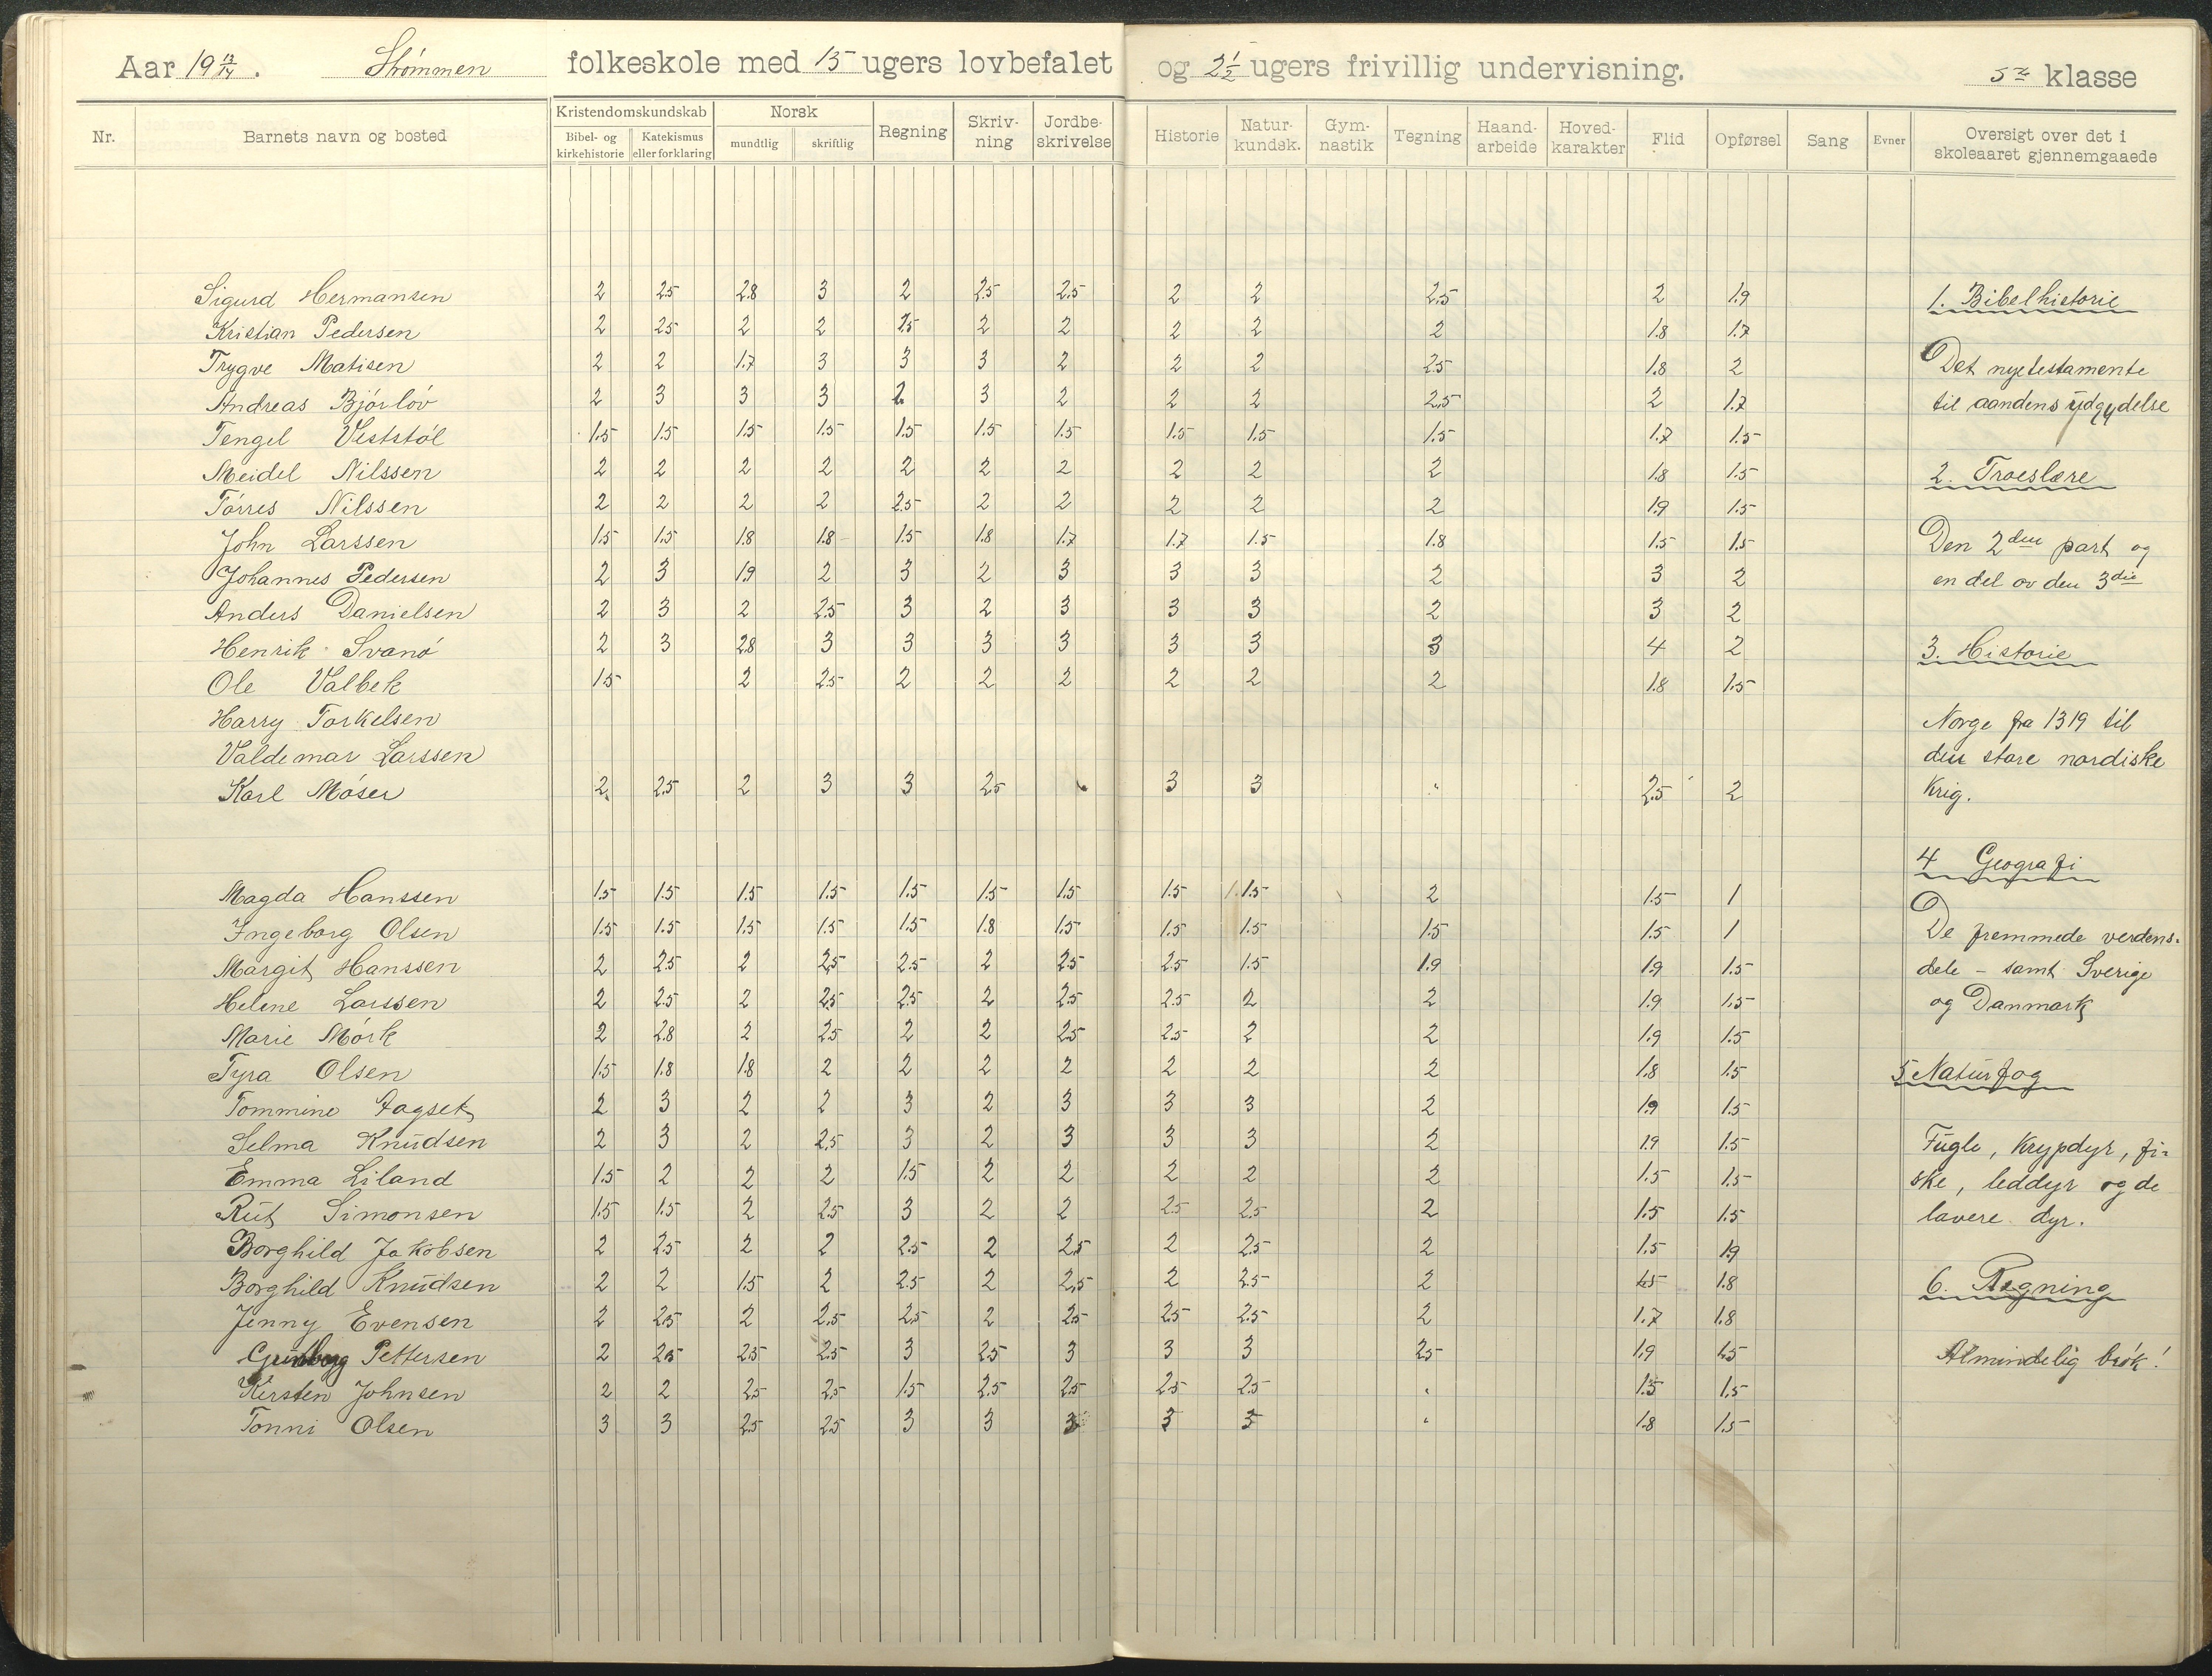 Aar 19 13/14 . Strømmen folkeskole med 15 ugers lovbefalet og 2 1/2 ugers frivillig undervisning. 5te klasse
Nr. Barnets navn og bosted Kristendomskundskab Bibel- og kirkehistorie Katekismus eller forklaring Norsk mundtlig skriftlig Regning Skriv-ning Jordbe-skrivelse Historie Natur-kundsk. Gym-nastik Tegning Haand-arbeide Hoved-karakter Flid Opførsel Sang Evner Oversigt over det i skoleaaret gjennemgaaede
Sigurd Hermansen 2 2.5 2.8 3 2 2.5 2.5 2 2 2.5 2 1.9 1. Bibelhistorie
Kristian Pedersen 2 2.5 2 2 2.5 2 2 2 2 2 1.8 1.7
Trygve Matisen 2 2 1.7 3 3 3 2 2 2 2.5 1.8 2 Det nyetestamente
Andreas Bjørløv 2 3 3 3 2 3 2 2 2 2.5 2 1.7 til aandens udgydelse
Tengel Veststøl 1.5 1.5 1.5 1.5 1.5 1.5 1.5 1.5 1.5 1.5 1.7 1.5
Meidel Nilssen 2 2 2 2 2 2 2 2 2 2 1.8 1.5 2. Troeslære
Tørres Nilssen 2 2 2 2 2.5 2 2 2 2 2 1.9 1.5
John Larssen 1.5 1.5 1.8 1.8 1.5 1.8 1.7 1.7 1.5 1.8 1.5 1.5 Den 2den part og
Johannes Pedersen 2 3 1.9 2 3 2 3 3 3 2 3 2 en del av den 3die
Anders Danielsen 2 3 2 2.5 3 2 3 3 3 2 3 2
Henrik Svanø 2 3 2.8 3 3 3 3 3 3 3 4 2 3. Historie
Ole Valbek 1.5 2 2.5 2 2 2 2 2 2 1.8 1.5
Harry Torkelsen Norge fra 1319 til
Valdemar Larssen den store nordiske
Karl Møser 2 2.5 2 3 3 2.5 3 3 2.5 2 Krig.
4 Geografi
Magda Hanssen 1.5 1.5 1.5 1.5 1.5 1.5 1.5 1.5 1.5 2 1.5 1
Ingeborg Olsen 1.5 1.5 1.5 1.5 1.5 1.8 1.5 1.5 1.5 1.5 1.5 1 De fremmede verdens-
Margit Hanssen 2 2.5 2 2.5 2.5 2 2.5 2.5 1.5 1.9 1.9 1.5 dele – samt Sverige
Helene Larssen 2 2.5 2 2.5 2.5 2 2.5 2.5 2 2 1.9 1.5 og Danmark
Marie Mørk 2 2.8 2 2.5 2 2 2.5 2.5 2 2 1.9 1.5
Tyra Olsen 1.5 1.8 1.8 2 2 2 2 2 2 2 1.8 1.5 5 Naturfag
Tommine Aagset 2 3 2 2 3 2 3 3 3 2 1.9 1.5
Selma Knudsen 2 3 2 2.5 3 2 3 3 3 2 1.9 1.5 Fugle, krypdyr, fi-
Emma Liland 1.5 2 2 2 1.5 2 2 2 2 2 1.5 1.5 ske, leddyr og de
Rut Simonsen 1.5 1.5 2 2.5 3 2 2 2.5 2.5 2 1.5 1.5 lavere dyr.
Borghild Jakobsen 2 2.5 2 2 2.5 2 2.5 2 2.5 2 1.5 1.9
Borghild Knudsen 2 2 1.5 2 2.5 2 2.5 2 2.5 2 1.5 1.8 6. Regning
Jenny Evensen 2 2.5 2 2.5 2.5 2 2.5 2.5 2.5 2 1.7 1.8
Pettersen 2 2.5 2.5 2.5 3 2.5 3 3 3 2.5 1.9 1.5 Almindelig brøk!
Kirsten Johnsen 2 2 2.5 2.5 1.5 2.5 2.5 2.5 2.5 1.5 1.5
Tonni Olsen 3 3 2.5 2.5 3 3 3 3 3 1.8 1.5